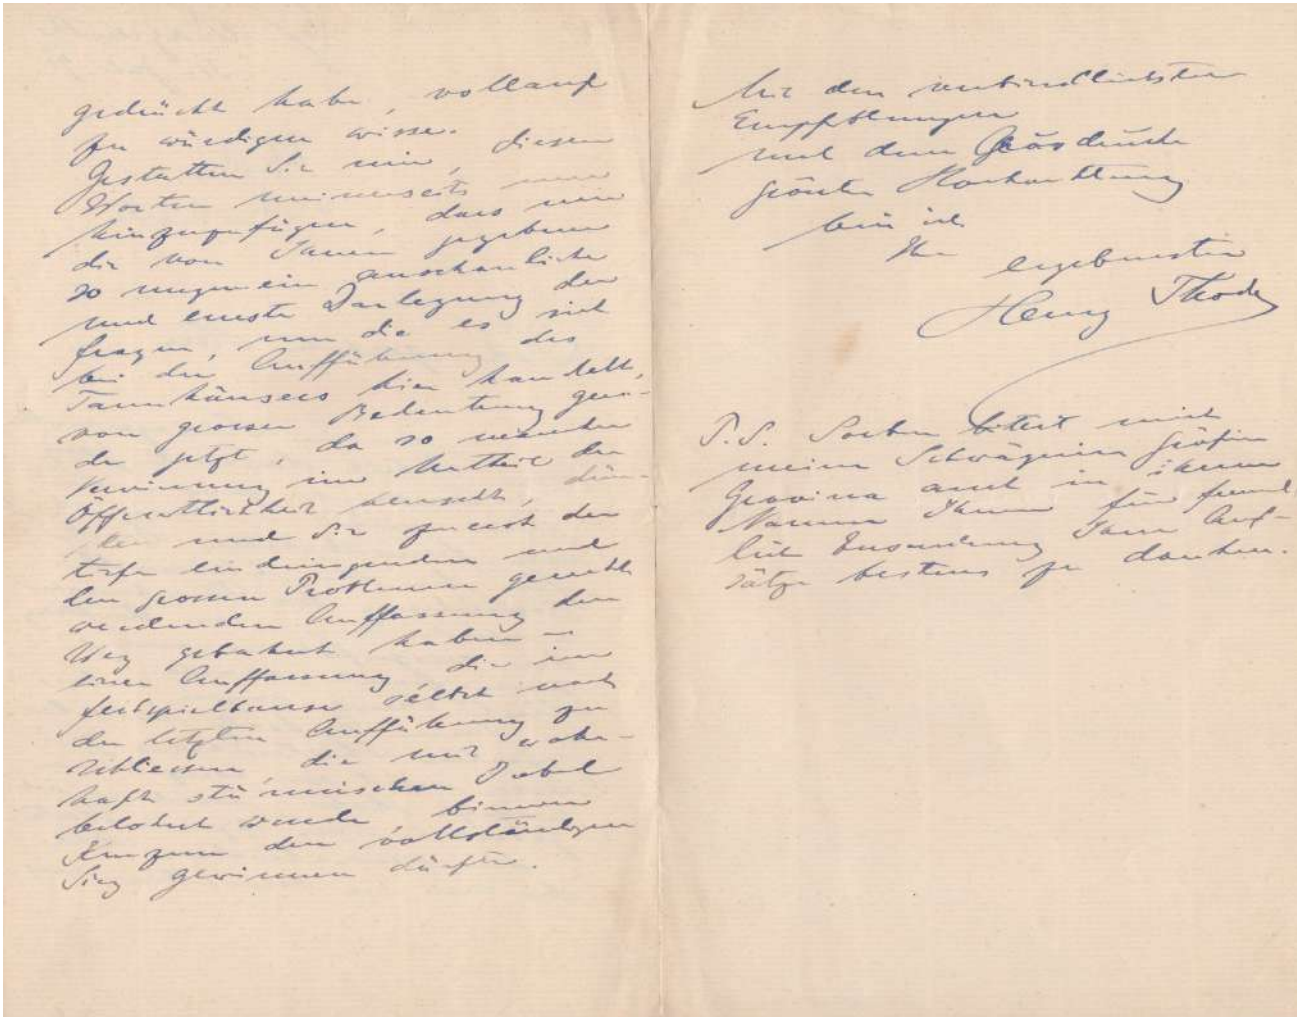 gedrückt habe, vollauf
zu würdigen wisse.
Gestatten Sie mir, diesen
Worten meinerseits nur
hinzuzufügen, dass mir
die von Ihnen gegebene
so ungemein anschauliche
und ernste Darlegung der
Fragen, um die es sich
bei der Aufführung des
Tannhäusers hier handelt,
von grosser Bedeutung gera-
de jetzt, da so mancher
Verwirrung im Urtheil der
Öffentlichkeit herrscht,
und Sie zuerst der
tiefer eindringenden und
den grossen Problemen gerecht
werdenden Auffassung den
Weg gebahnt haben –
einer Auffassung, die im
Festspielhause selbst nach
der letzten Aufführung zu
schliessen, die mit wahr-
haft stürmischem Jubel
belohnt wurde, binnen
Kurzem den vollständigen
Sieg gewinnen dürfte.
Mit den verbindlichsten
Empfehlungen
und dem Ausdrucke
grösster Hochachtung
bin ich
Ihr ergebenster
Henry Thode
P.S. Soeben bittet mich
meine Schwägerin Gräfin
Gravina auch in ihrem
Namen Ihnen für freund-
liche Zusendung Ihrer Auf-
sätze bestens zu danken.